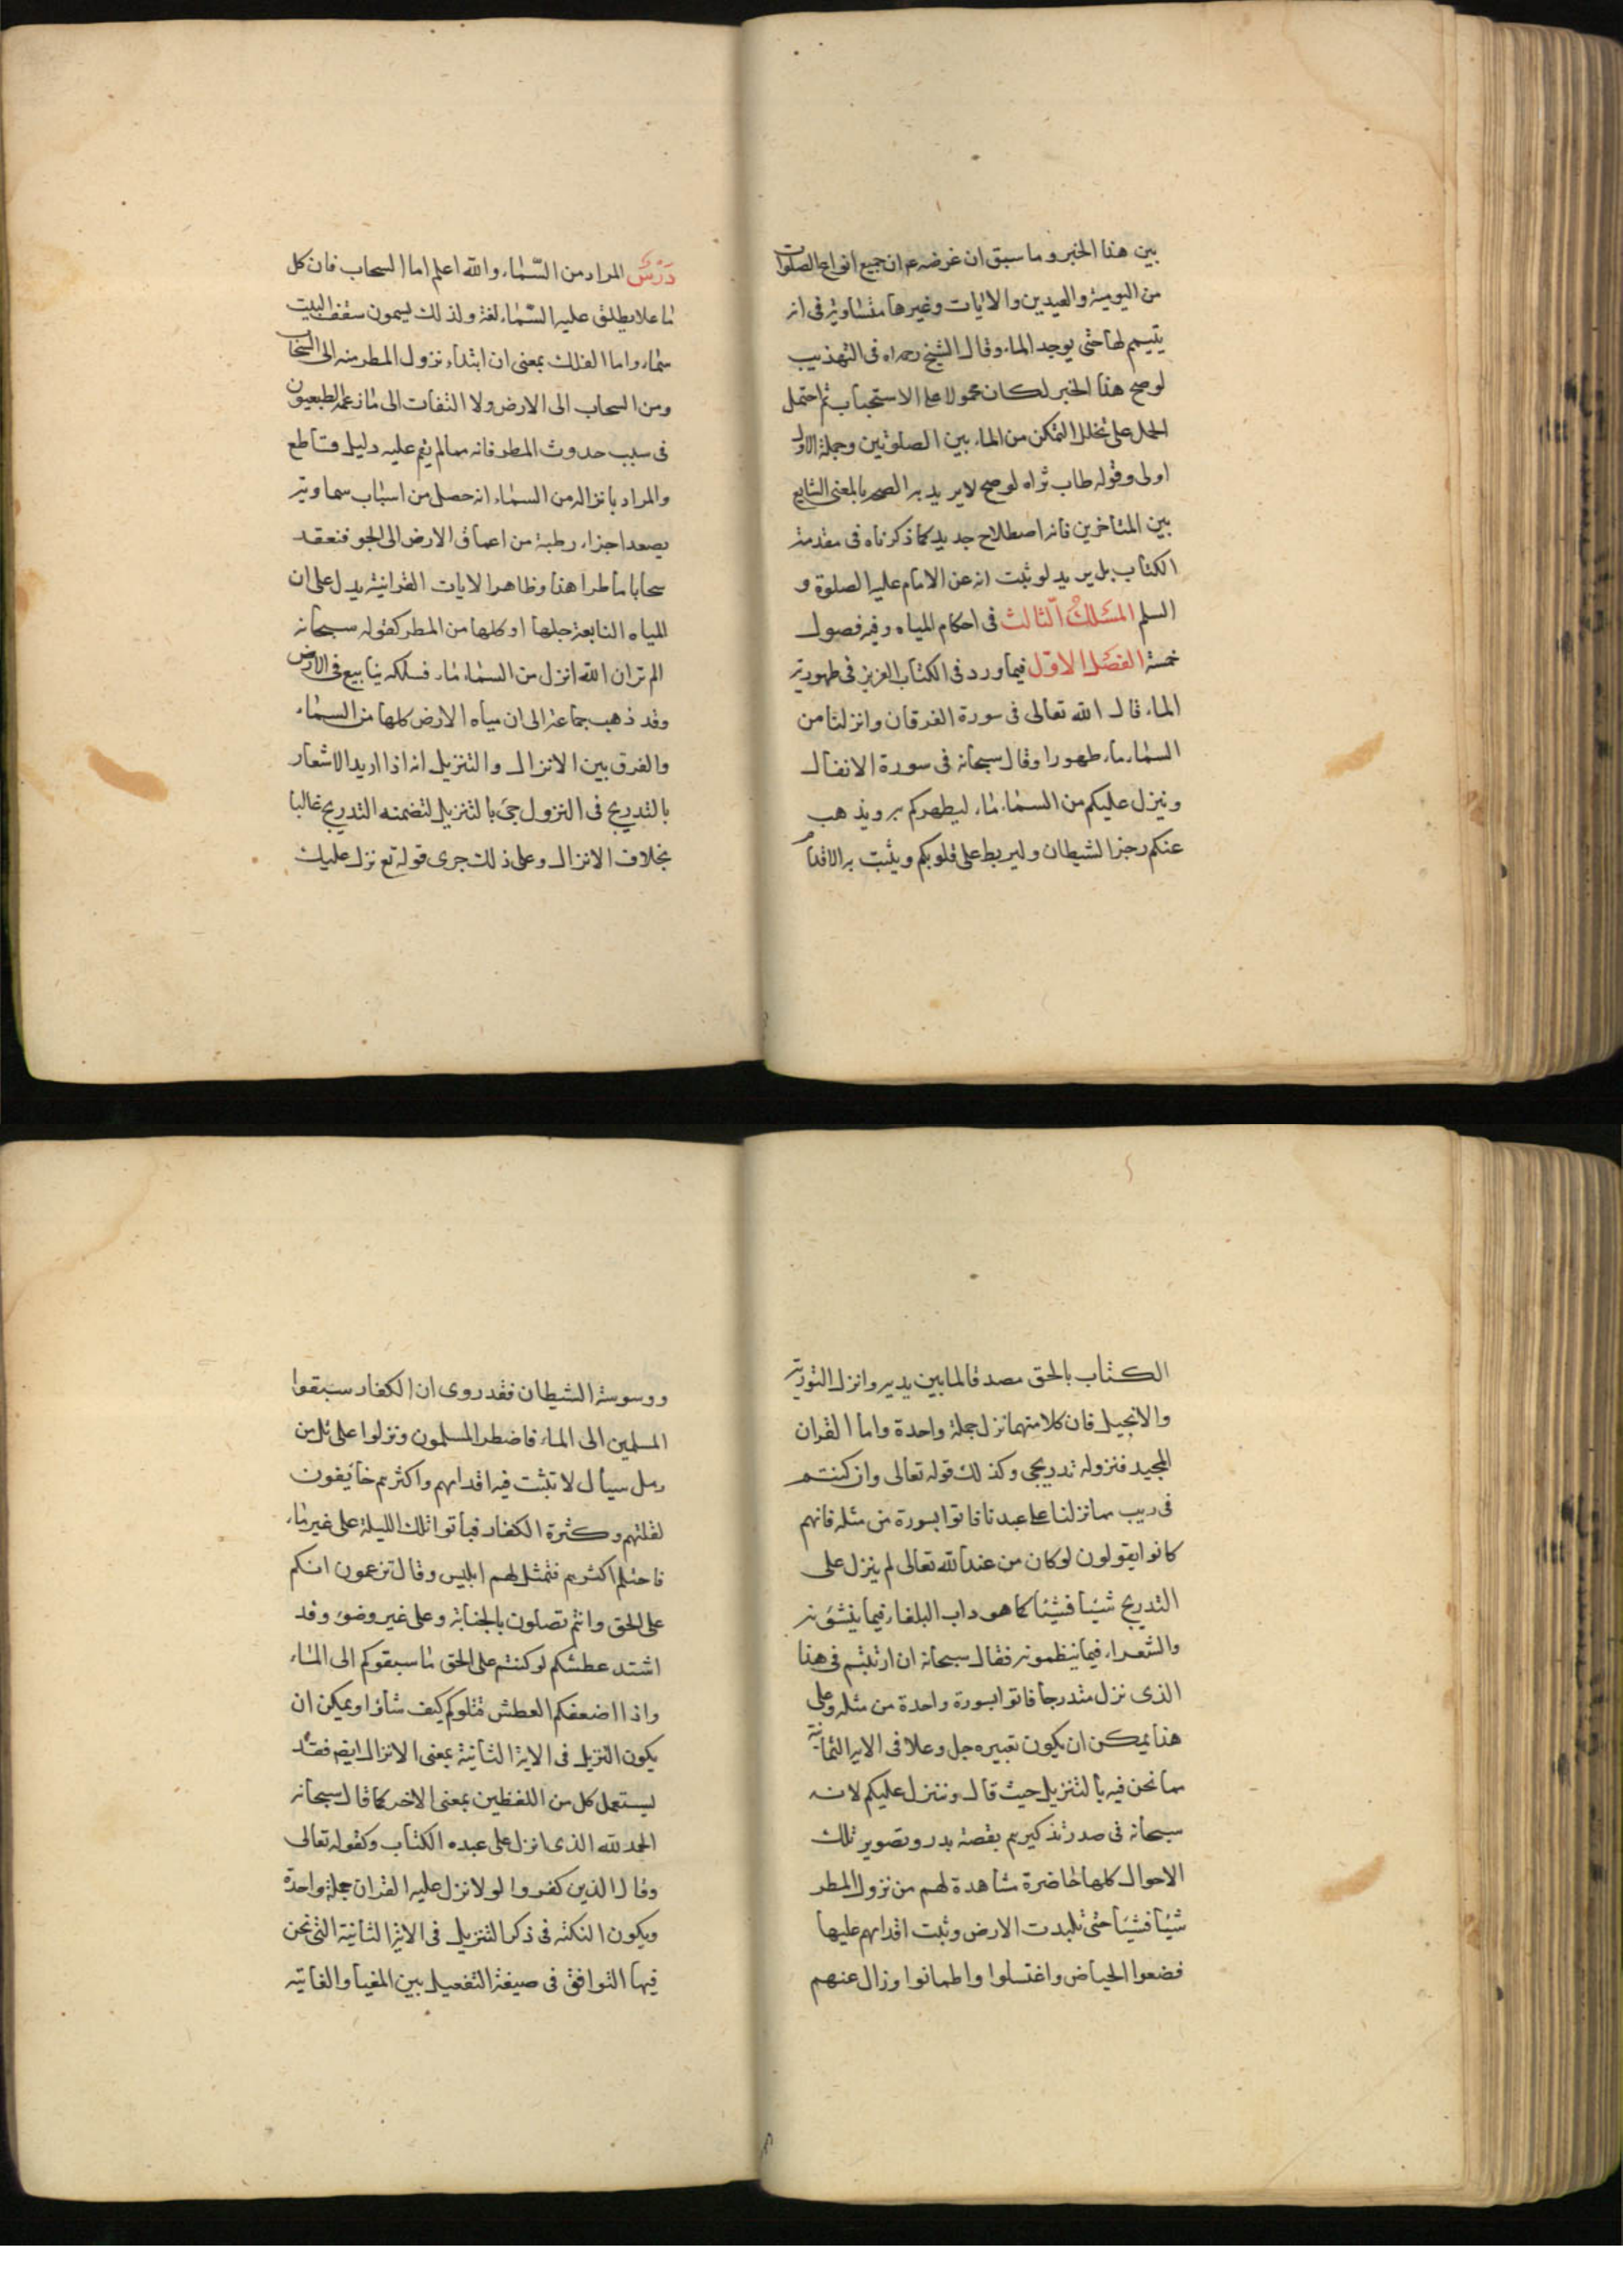 بين هذا الخبر وما سبق ان غرضه ع م ان جميع انواع الصلوات
من اليومية والعيدين والايات وغيرها متساوية في انه
يتيمم لها حتى يوجد الماء وقال الشيخ رحمه اه في التهذيب
لو صح هذا الخبر لكان محمولا على الاستحباب ثم احتمل
الحمل على تخلل التمكن من الماء بين الصلوتين وجملة الاول
اولى وقوله طاب ثراه لو صح لا يريد به الصحة بالمعنى الشايع
بين المتاخرين فانه اصطلاح جديد كما ذكرناه في مقدمة
الكتاب بل يريد لو ثبت انه عن الامام عليه الصلوة و
السلم المسلك الثالث في احكام المياه وفيه فصول
خمسة الفصل الاول فيما ورد في الكتاب العزيز في طهورية
الماء قال الله تعالى في سورة الفرقان وانزلنا من
السماء ماء طهورا وقال سبحانه في سورة الانفال
وينزل عليكم من السماء ماء ليطهركم به ويذهب
عنكم رجز الشيطان وليربط على قلوبكم ويثبت به الاقدام
درس المراد من السماء والله اعلم اما السحاب فان كل
ما علا يطلق عليه السماء لغة ولذلك يسمون سقف البيت
سماء واما الفلك بمعنى ان ابتداء نزول المطر منه الى السحاب
ومن السحاب الى الارض ولا التفات الى ما زعمه الطبيعيون
في سبب حدوث المطر فانه مما لم يقم عليه دليل قاطع
والمراد بانزاله من السماء انه حصل من اسباب سماوية
يصعد اجزاء رطبة من اعماق الارض الى الجو فنعقد
سحابا ماطرا هذا وظاهر الايات القرانية يدل على ان
المياه النابعة جلها او كلها من المطر كقوله سبحانه
الم تر ان الله انزل من السماء ماء فسلكه ينابيع في الارض
وقد ذهب جماعة الى ان مياه الارض كلها من السماء
والفرق بين الانزال والتنزيل انه اذا اريد الاشعار
بالتدريج في النزول جئ بالتنزيل لتضمنه التدريج غالبا
بخلاف الانزال وعلى ذلك جرى قوله تع نزل عليك
الكتاب بالحق مصدقا لما بين يديه وانزل التورية
والانجيل فان كلا منهما نزل جملة واحدة واما القران
المجيد فنزوله تدريجي وكذلك قوله تعالى وان كنتم
في ريب مما نزلنا على عبدنا فاتوا بسورة من مثله فانهم
كانوا يقولون لو كان من عند الله تعالى لم ينزل على
التدريج شيئا فشيئا كما هو داب البلغاء فيما ينشؤنه
والشعراء فيما ينظمونه فقال سبحانه ان ارتبتم في هذا
الذي نزل متدرجا فاتوا بسورة واحدة من مثله وعلى
هذا يمكن ان يكون تعبيره جل وعلا في الاية الثانية
مما نحن فيه بالتنزيل حيث قال وننزل عليكم لانه
سبحانه في صدر تذكيرهم بقصة بدر وتصوير تلك
الاحوال كلها حاضرة مشاهدة لهم من نزول المطر
شيئا فشيئا حتى تلبدت الارض وثبت اقدامهم عليها
فضعوا الحياض واغتسلوا واطمانوا وزال عنهم
ووسوسة الشيطان فقد روى ان الكفار سبقوا
المسلمين الى الماء فاضطر المسلمون ونزلوا على تل من
رمل سيال لا تثبت فيه اقدامهم واكثرهم خائفون
لقلتهم وكثرة الكفار فباتوا تلك الليلة على غير ماء
فاحتلم اكثرهم فتمثل لهم ابليس وقال تزعمون انكم
على الحق وانتم تصلون بالجنابة وعلى غير وضوء وقد
اشتد عطشكم لو كنتم على الحق ما سبقوكم الى الماء
واذا اضعفكم العطش قتلوكم كيف شاؤا ويمكن ان
يكون التنزيل في الاية الثانية بمعنى الانزال ايضم فقد
يستعمل كل من اللفظين بمعنى الاخر كما قال سبحانه
الحمد لله الذي انزل على عبده الكتاب وكقوله تعالى
وقال الذين كفروا لولا نزل عليه القران جملة واحدة
ويكون النكتة في ذكر التنزيل في الاية الثانية التي نحن
فيها التوافق في صيغة التفعيل بين المغيا والغاية